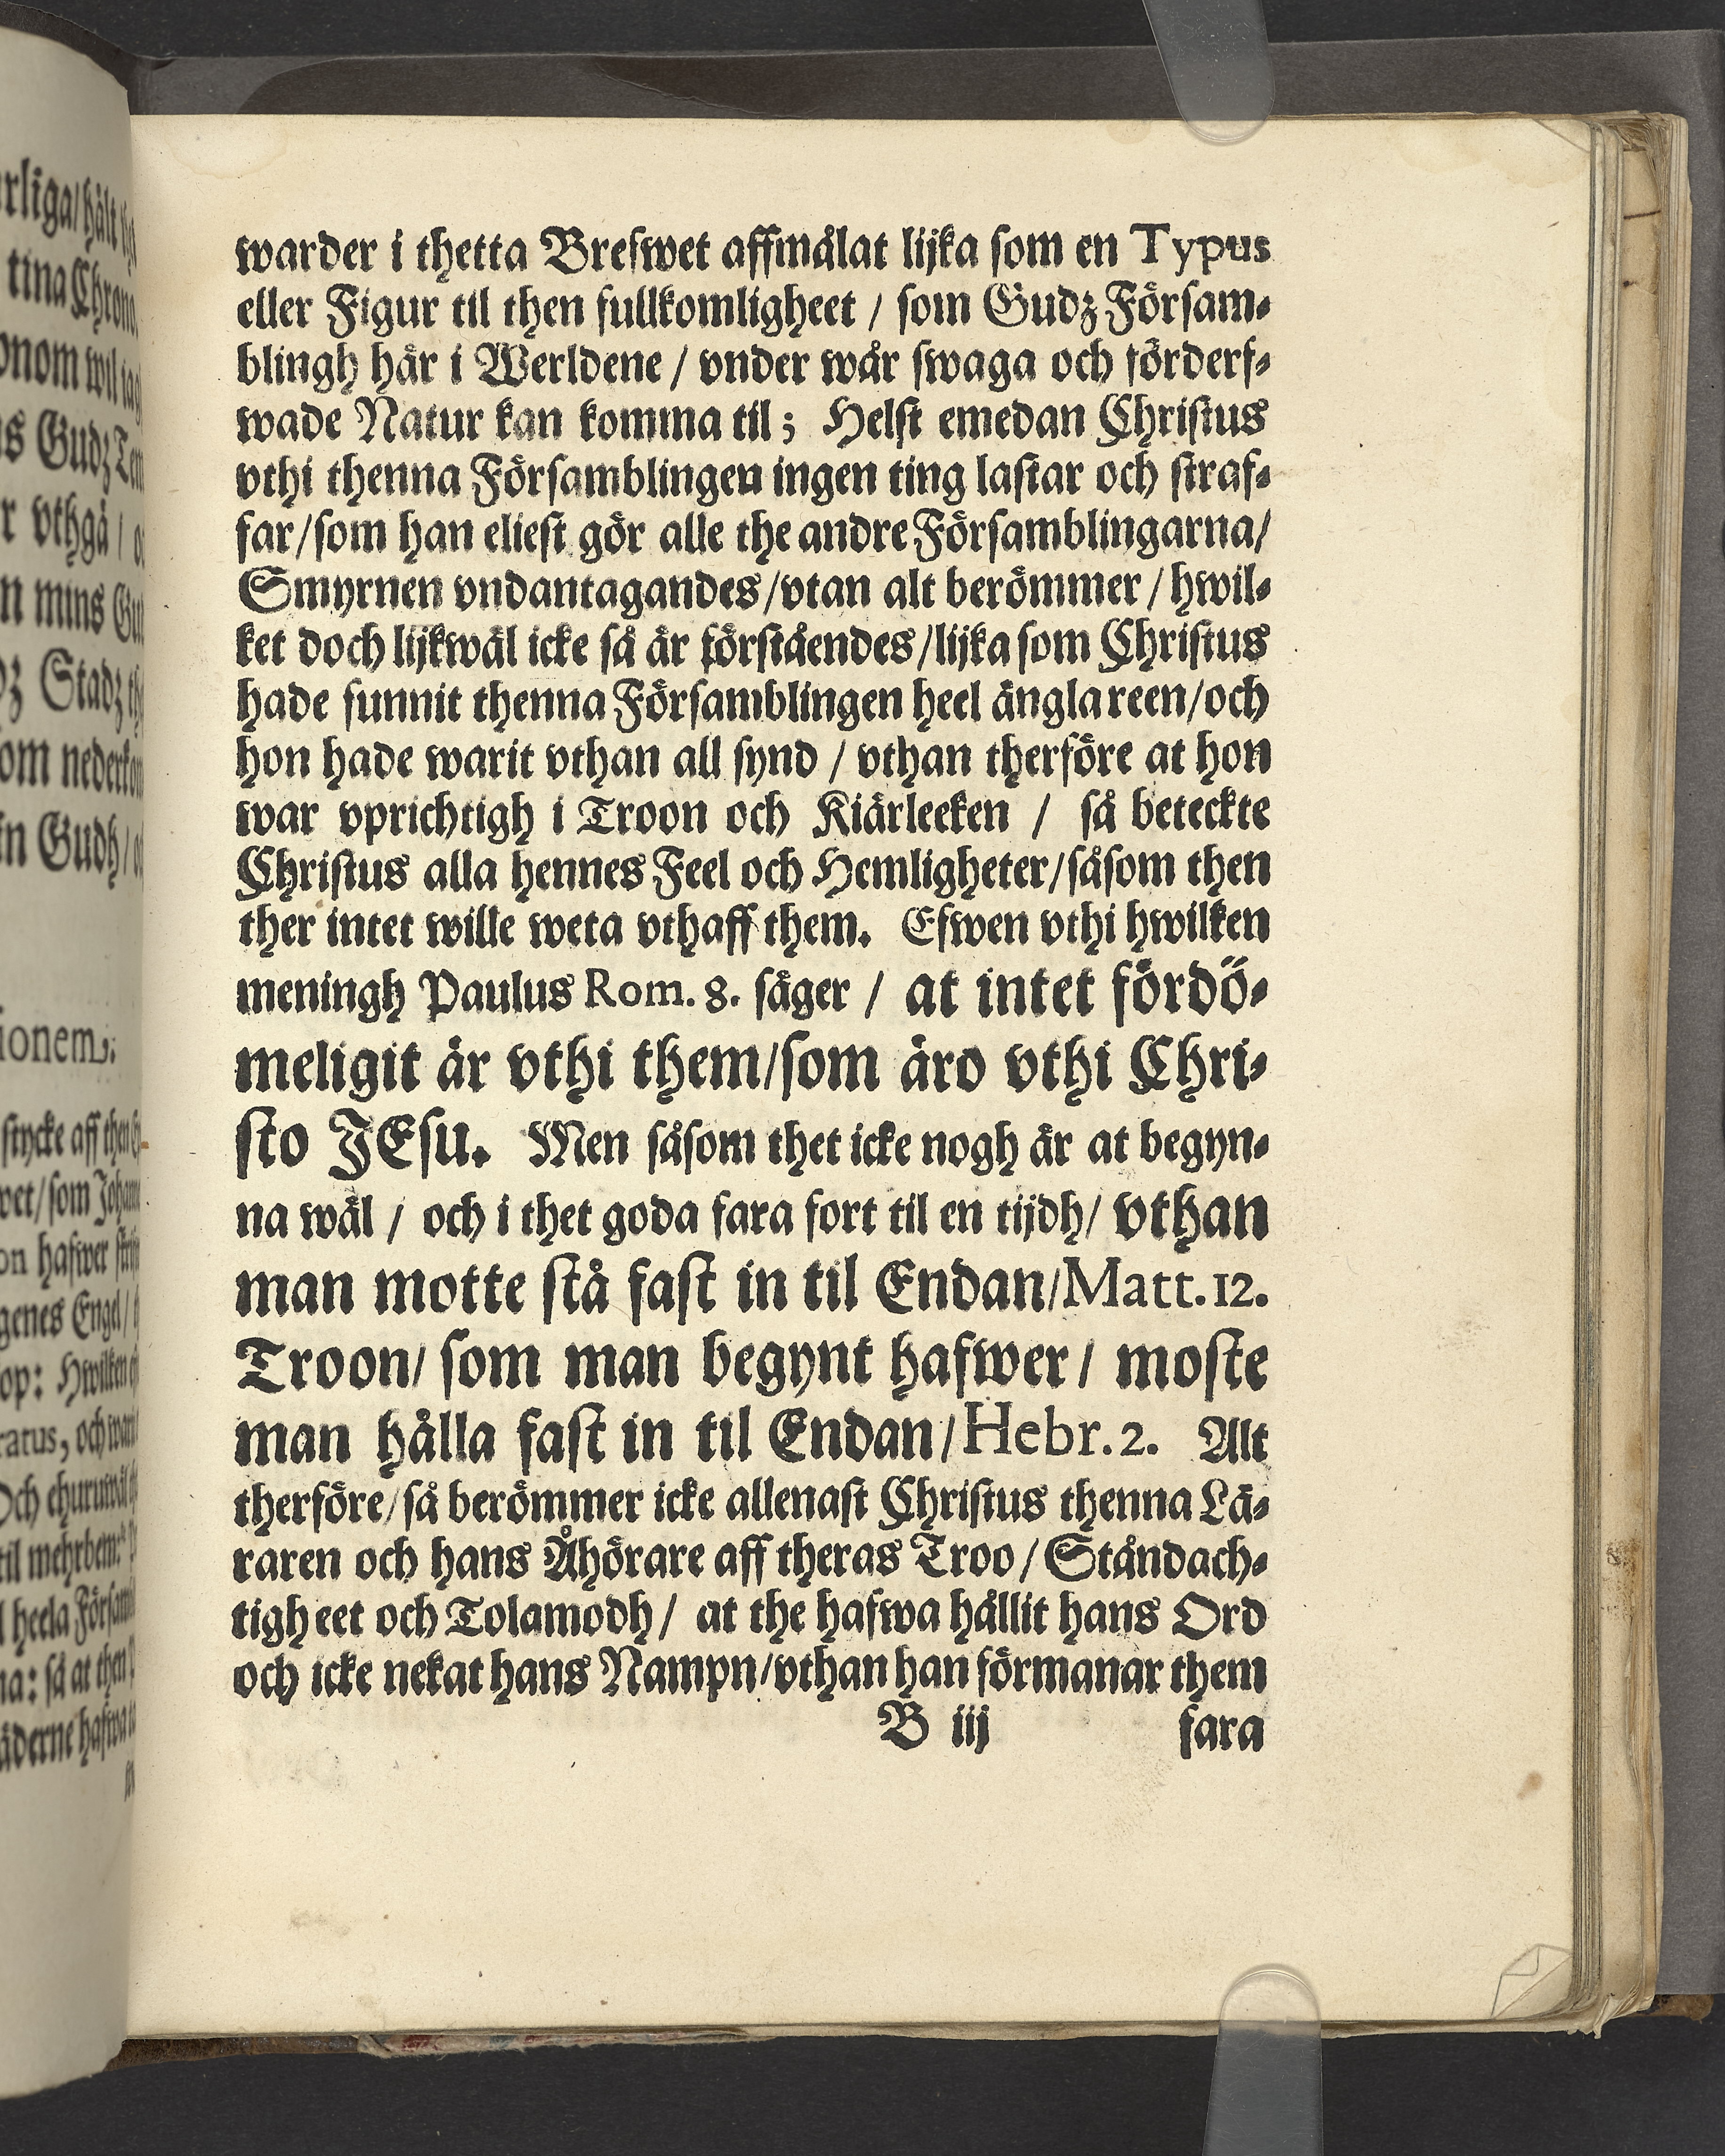 warder i thetta Brefwet affmålat lijka som en Typus
eller Figur til then fullkomligheet / som Gudz Försam-
blingh här i Werldene / vnder wår swaga och förderf-
wade Natur kan komma til; Helst emedan Christus
vthi thenna Församblingen ingen ting lastar och straf-
far/som han eliest gör alle the andre Församblingarna/
Smyrnen vndantagandes/vtan alt berömmer / hwil-
ket doch lijkwäl icke så är förståendes/lijka som Christus
hade funnit thenna Församblingen heel ängla reen/och
hon hade warit vthan all synd / vthan therföre at hon
war vprichtigh i Troon och Kiärleeken / så beteckte
Christus alla hennes Feel och Hemligheter/såsom then
ther intet wille weta vthaff them. Efwen vthi hwilken
meningh Paulus Rom. 8. säger / at intet fördö-
meligit är vthi them/som äro vthi Chri-
sto JEsu. Men såsom thet icke nogh är at begyn-
na wäl / och i thet goda fara fort til en tijdh/ vthan
man motte stå fast in til Endan/Matt. 12.
Troon/ som man begynt hafwer / moste
man hålla fast in til Endan/Hebr. 2. Alt
therföre/så berömmer icke allenast Christus thenna Lä-
raren och hans Åhörare aff theras Troo / Ståndach-
tigheet och Tolamodh / at the hafwa hållit hans Ord
och icke nekat hans Nampn/vthan han förmanar them
B iij fara